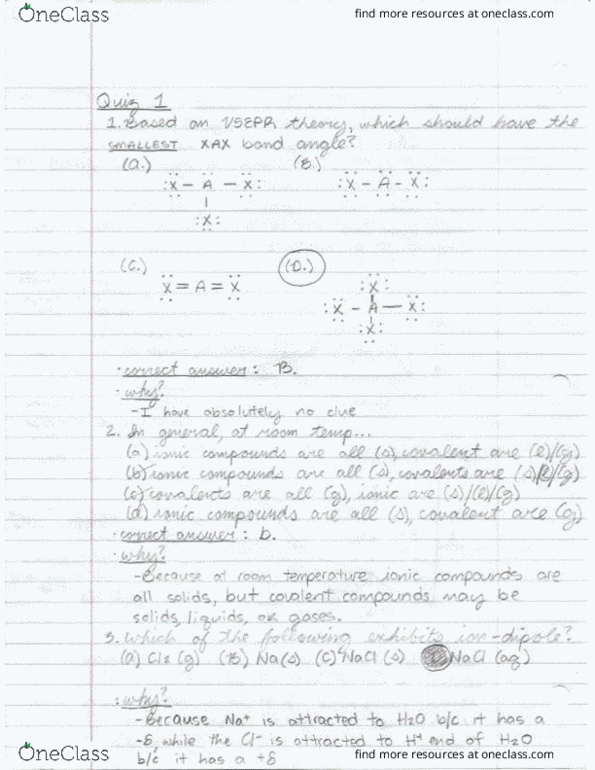 OneClass
find more resources at oneclass.com
Quiz 1
1. Based on VSEPR theory, which should have the
SMALLEST XAX bond angle?
(A.) (B.)
:X - A - X: :X - A - X:
|
:X:
(C.) (D.)
X = A = X :X:
|
:X - A - X:
|
:X:
· correct answer: B.
· why?
- I have absolutely no clue
2. In general, at room temp...
(a) ionic compounds are all (s), covalent are (l)/(g)
(b) ionic compounds are all (s), covalents are (s)/(l)/(g)
(c) covalents are all (g), ionic are (s)/(l)/(g)
(d) ionic compounds are all (s), covalent are (g)
· correct answer: b.
· why?
- Because at room temperature ionic compounds are
all solids, but covalent compounds may be
solids, liquids, or gases.
3. Which of the following exhibits ion-dipole?
(A) Cl2 (g) (B) Na(s) (C) NaCl (s) NaCl (aq)
: why?
- Because Na+ is attracted to H2O b/c it has a
-δ, while the Cl- is attracted to H+ end of H2O
b/c it has a +δ
OneClass
find more resources at oneclass.com